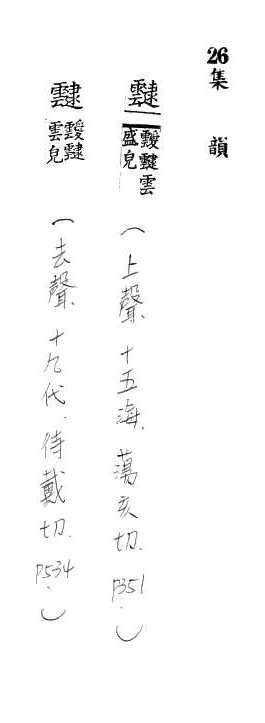 26集韻
靆靉靆雲盛皃(上聲.十五海.蕩亥切.P351.)
靆靉靆雲皃(去聲.十九代.待戴切.P534.)